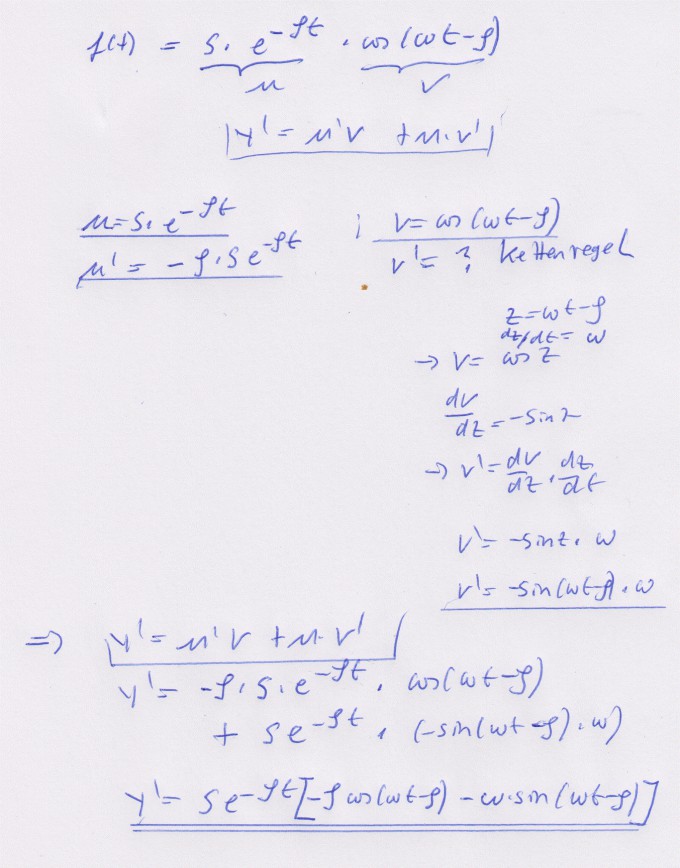 f(t) = S · e^(-ρt) · cos(ωt-ρ)
u v
y' = u'v + u·v'
u = S · e^(-ρt) ; v = cos(ωt-ρ)
u' = -ρ · S e^(-ρt) v' = ? Kettenregel
z = ωt-ρ
dz/dt = ω
→ v = cos z
dv/dz = -sin z
→ v' = dv/dz · dz/dt
v' = -sin z · ω
v' = -sin(ωt-ρ) · ω
⇒ y' = u'v + u·v'
y' = -ρ · S · e^(-ρt) · cos(ωt-ρ)
+ S e^(-ρt) · (-sin(ωt-ρ) · ω)
y' = S e^(-ρt) [-ρ cos(ωt-ρ) - ω·sin(ωt-ρ)]